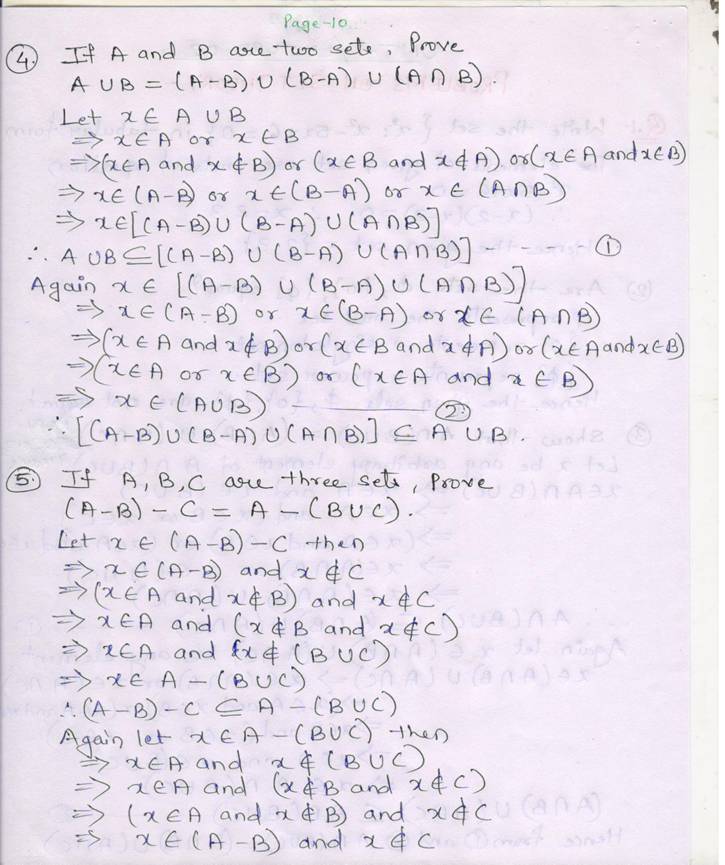 Page-10
4. If A and B are two sets, Prove
A ∪ B = (A-B) ∪ (B-A) ∪ (A∩B).
Let x ∈ A ∪ B
⇒ x∈A or x∈B
⇒ (x∈A and x∉B) or (x∈B and x∉A) or (x∈A and x∈B)
⇒ x∈(A-B) or x∈(B-A) or x∈(A∩B)
⇒ x∈[(A-B)∪(B-A)∪(A∩B)]
∴ A∪B⊆[(A-B)∪(B-A)∪(A∩B)] ——— ①
Again x∈[(A-B)∪(B-A)∪(A∩B)]
⇒ x∈(A-B) or x∈(B-A) or x∈(A∩B)
⇒ (x∈A and x∉B) or (x∈B and x∉A) or (x∈A and x∈B)
⇒ (x∈A or x∈B) or (x∈A and x∈B)
⇒ x∈(A∪B) ——— ②
∴ [(A-B)∪(B-A)∪(A∩B)] ⊆ A∪B.
5. If A, B, C are three sets, Prove
(A-B)-C = A-(B∪C).
Let x∈(A-B)-C then
⇒ x∈(A-B) and x∉C
⇒ (x∈A and x∉B) and x∉C
⇒ x∈A and (x∉B and x∉C)
⇒ x∈A and x∉(B∪C)
⇒ x∈A-(B∪C)
∴ (A-B)-C ⊆ A-(B∪C)
Again let x∈A-(B∪C) then
⇒ x∈A and x∉(B∪C)
⇒ x∈A and (x∉B and x∉C)
⇒ (x∈A and x∉B) and x∉C
⇒ x∈(A-B) and x∉C